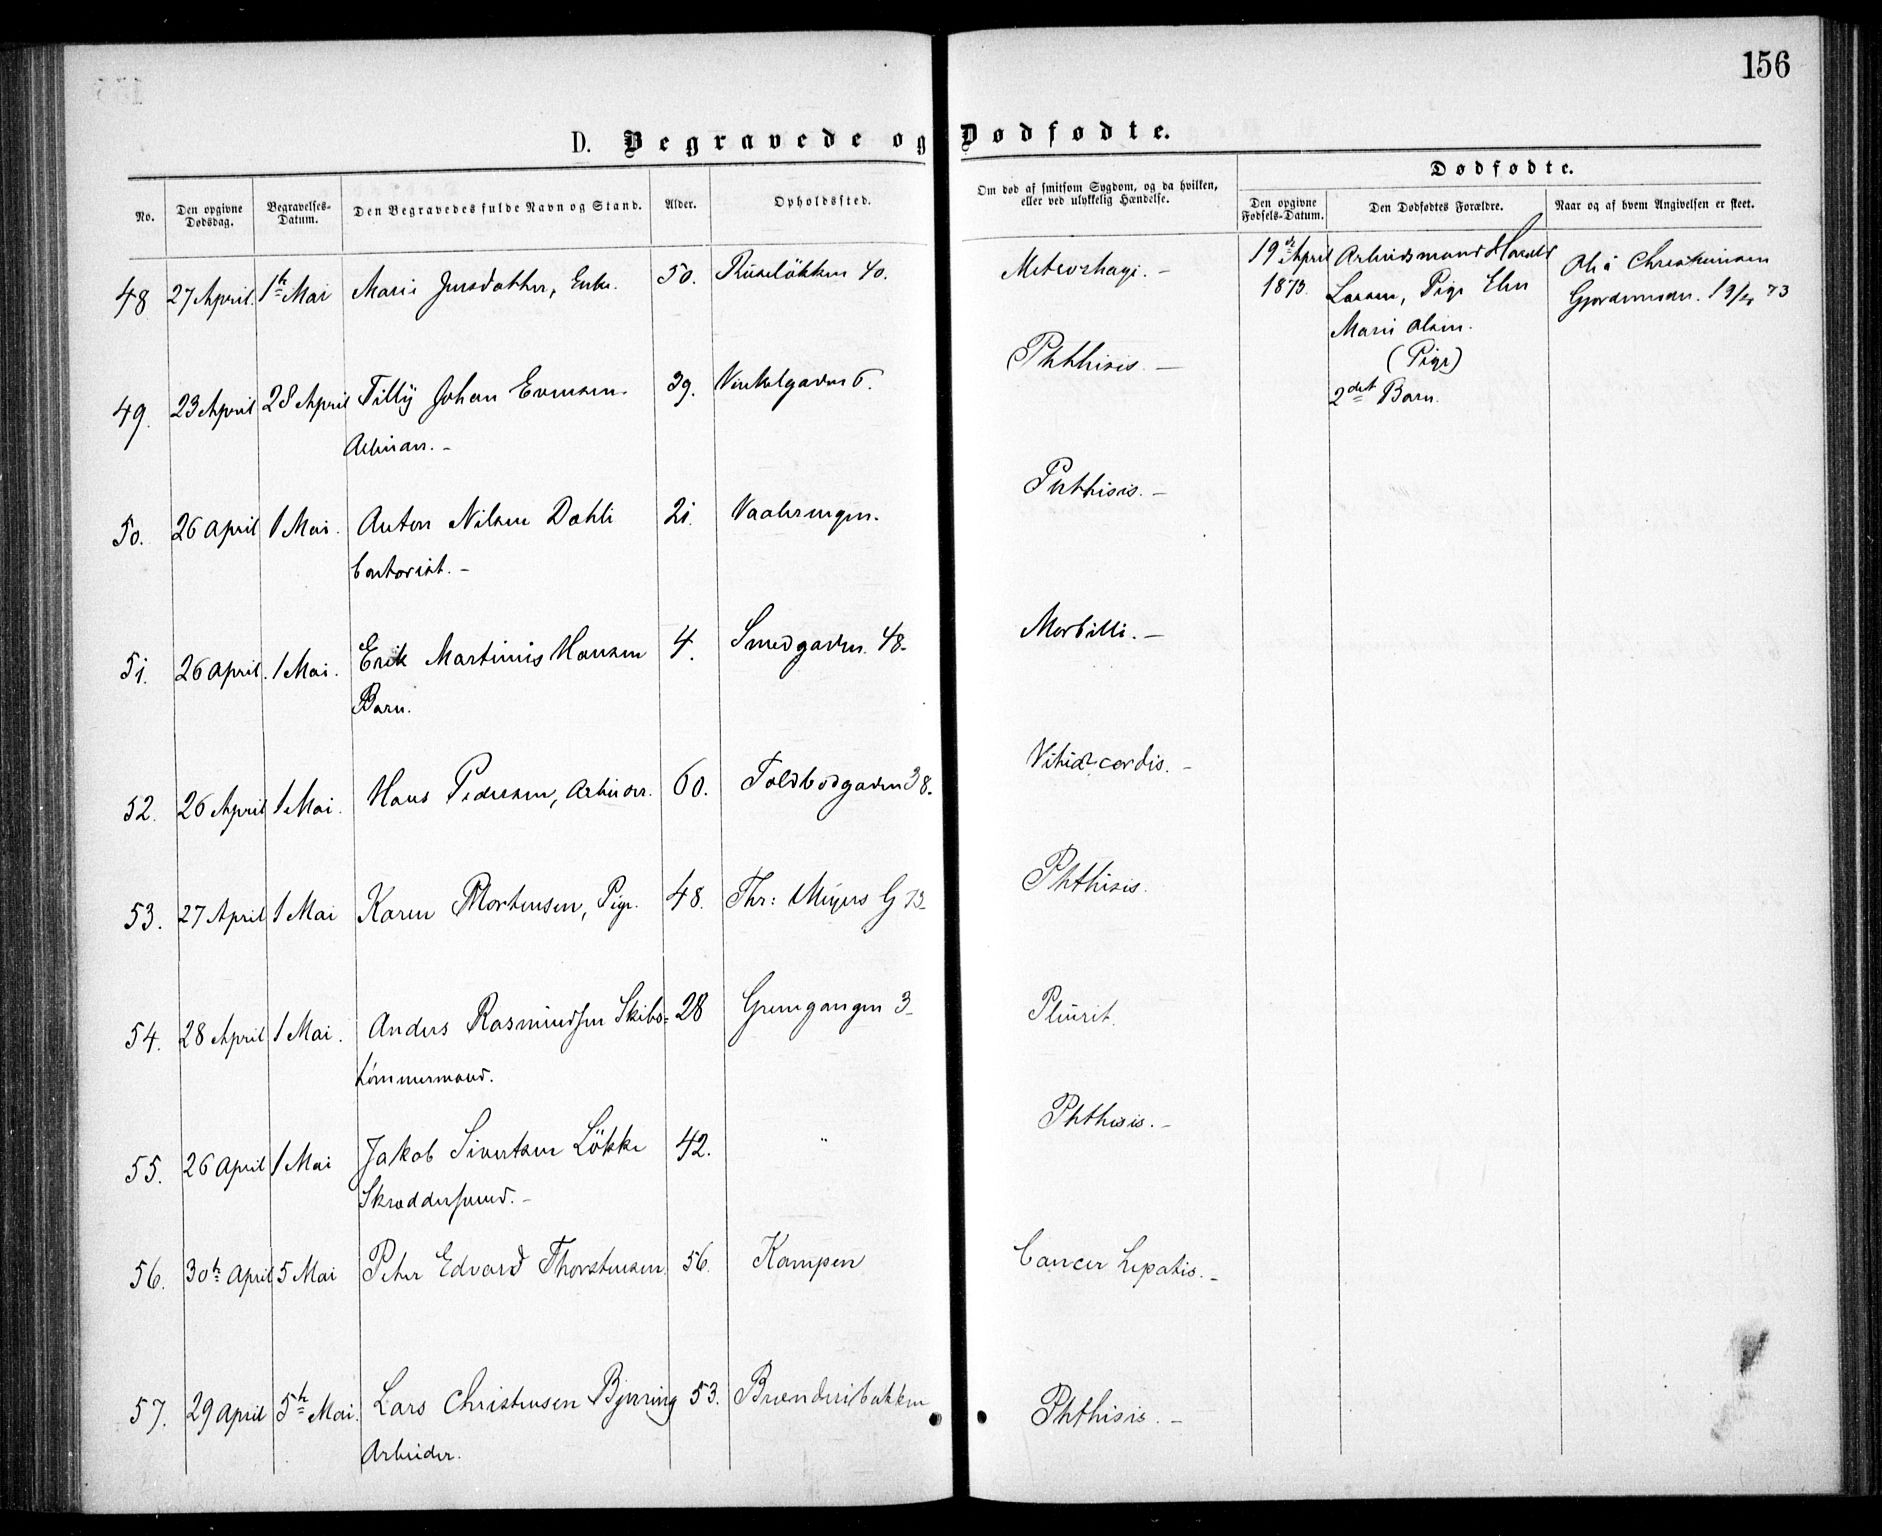 156
D. Begravede og Dødfødte.
No. Den opgivne Dødsdag. Begravelses-Datum. Den Begravedes fulde Navn og Stand. Alder. Opholdssted. Om død af smitsom Sygdom, og da hvilken, eller ved ulykkelig Hændelse.
Dødfødte.
Den opgivne Fødsels-Datum. Den Dødfødtes Forældre. Naar og af hvem Angivelsen er skeet.
48 27 April. 1ste Mai Marie Jensdatter, Enke. 50. Ruseløkken 40. Metrorhagi. –
49. 23 April 28 April Tilly Johan Evensen 39. Vinkelgaden 6. Phthisis. –
Arbider. –
50. 26 April 1 Mai. Anton Nilsen Dahli 21. Vaalerengen. Phthisis. –
Contorist. –
51. 26 April. 1 Mai. Erik Martinius Hansen 4. Smedgaden 48. Morbilli. –
Barn.
52. 26 April 1 Mai. Hans Pedersen, Arbider. 60. Toldbodgaden 38. Vitia cordis. –
53. 27 April 1 Mai Karen Mortensen, Pige. 48. Thr: Meyers G 73. Phthisis.
54. 28 April 1 Mai. Anders Rasmussen Skibs= 28 Grængangen 3 Pleurit.
tømmermand.
55. 26 April 1 Mai Jakob Sivertsen Løkke 42. " Phthisis. –
Skræddersvend. –
56. 30te April 5 Mai Peter Edvard Thorstensen 56. Kampen Cancer hepatis. –
57. 29 April 5te Mai. Lars Christensen Bjerring 53. Brænderibakken Phthisis. –
Arbeider.
19de April Arbeidsmand Harald
1873. Larsen, Pige Elen
Marie Olsen.
(Pige)
2det Barn.
Christensen
Gjordemoder. 19/4 73